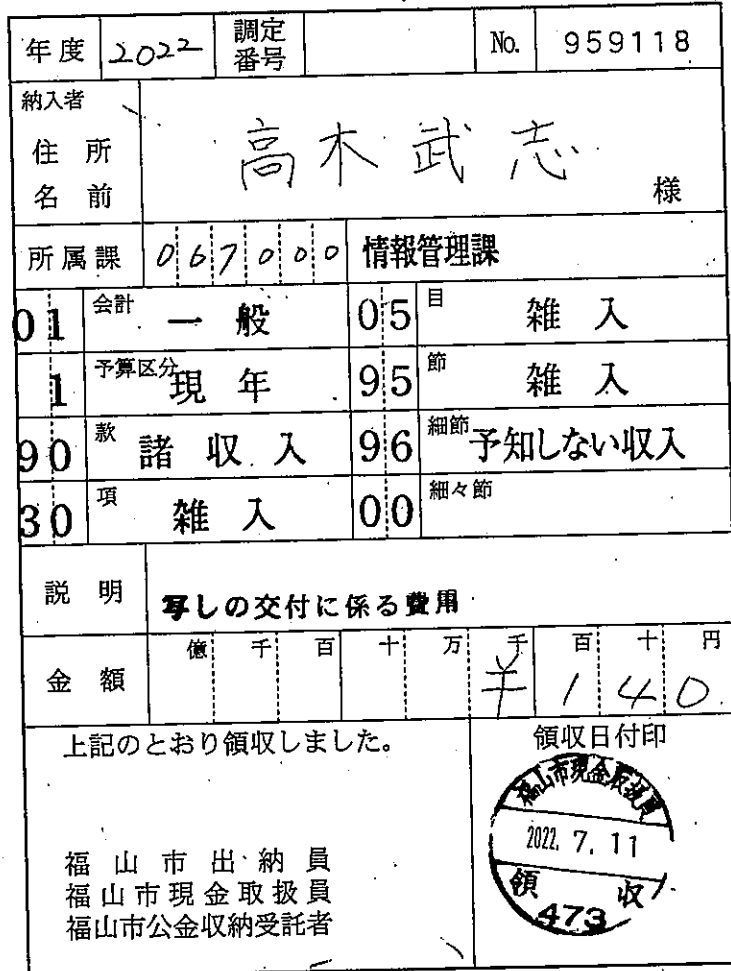 年度 2022 調定番号 No. 959118
納入者
住所
名前
高木武志 様
所属課 067000 情報管理課
01 会計 一般 05 目 雑入
1 予算区分 現年 95 節 雑入
90 款 諸収入 96 細節 予知しない収入
30 項 雑入 00 細々節
説明 写しの交付に係る費用
金額 億 千 百 十 万 千 百 十 円
¥140
上記のとおり領収しました。
領収日付印
福山市出納員
福山市現金取扱員
福山市公金収納受託者
福山市現金取扱員
2022. 7. 11
領収
473